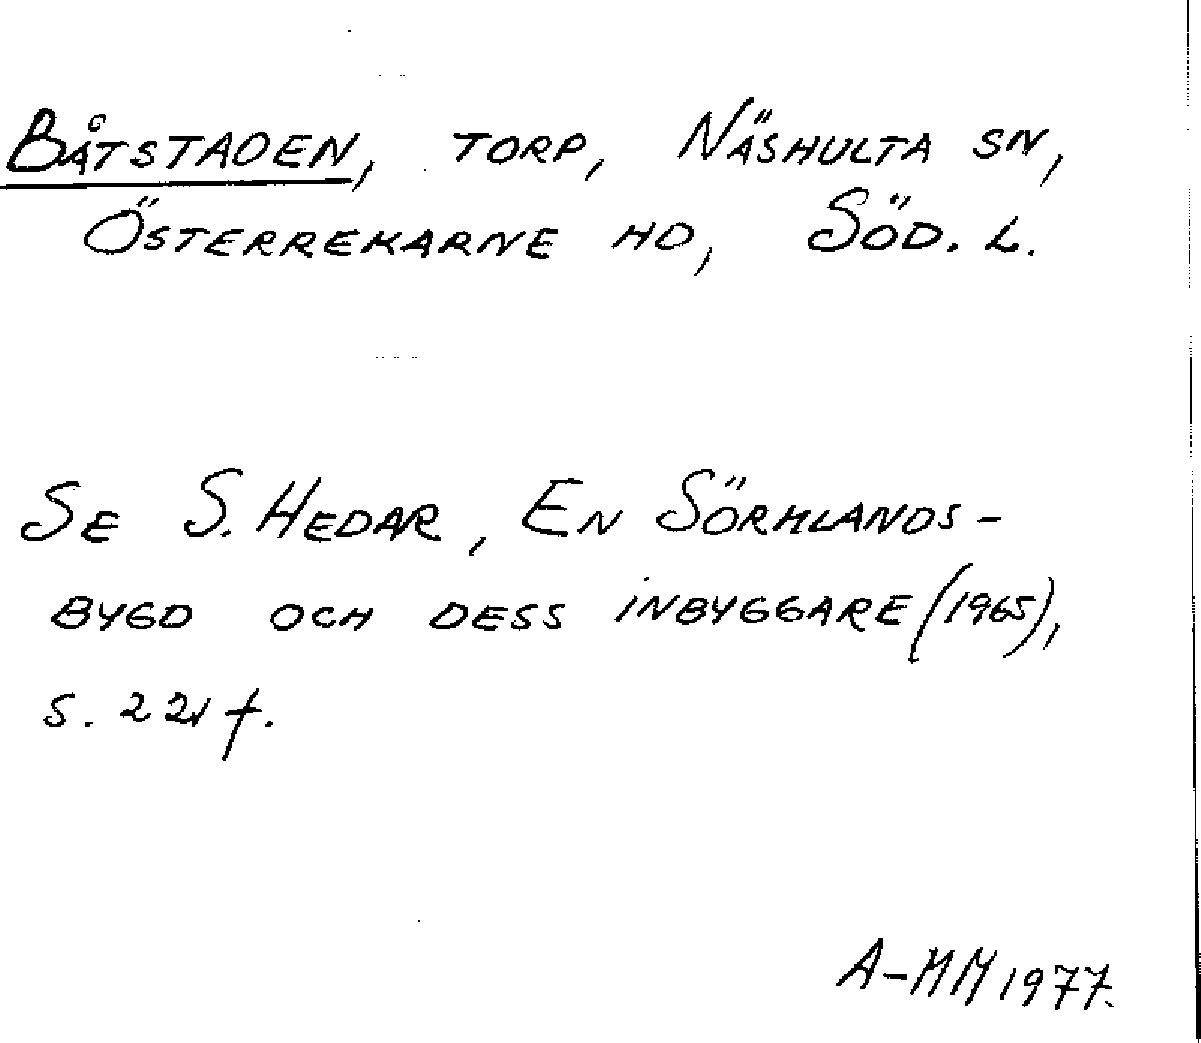 BÅTSTADEN, TORP, NÄSHULTA SN,
ÖSTERREKARNE HD, SÖD. L.
SE S. HEDAR, EN SÖRMLANDS-
BYGD OCH DESS INBYGGARE (1965),
S. 221 f.
A-MM 1977.